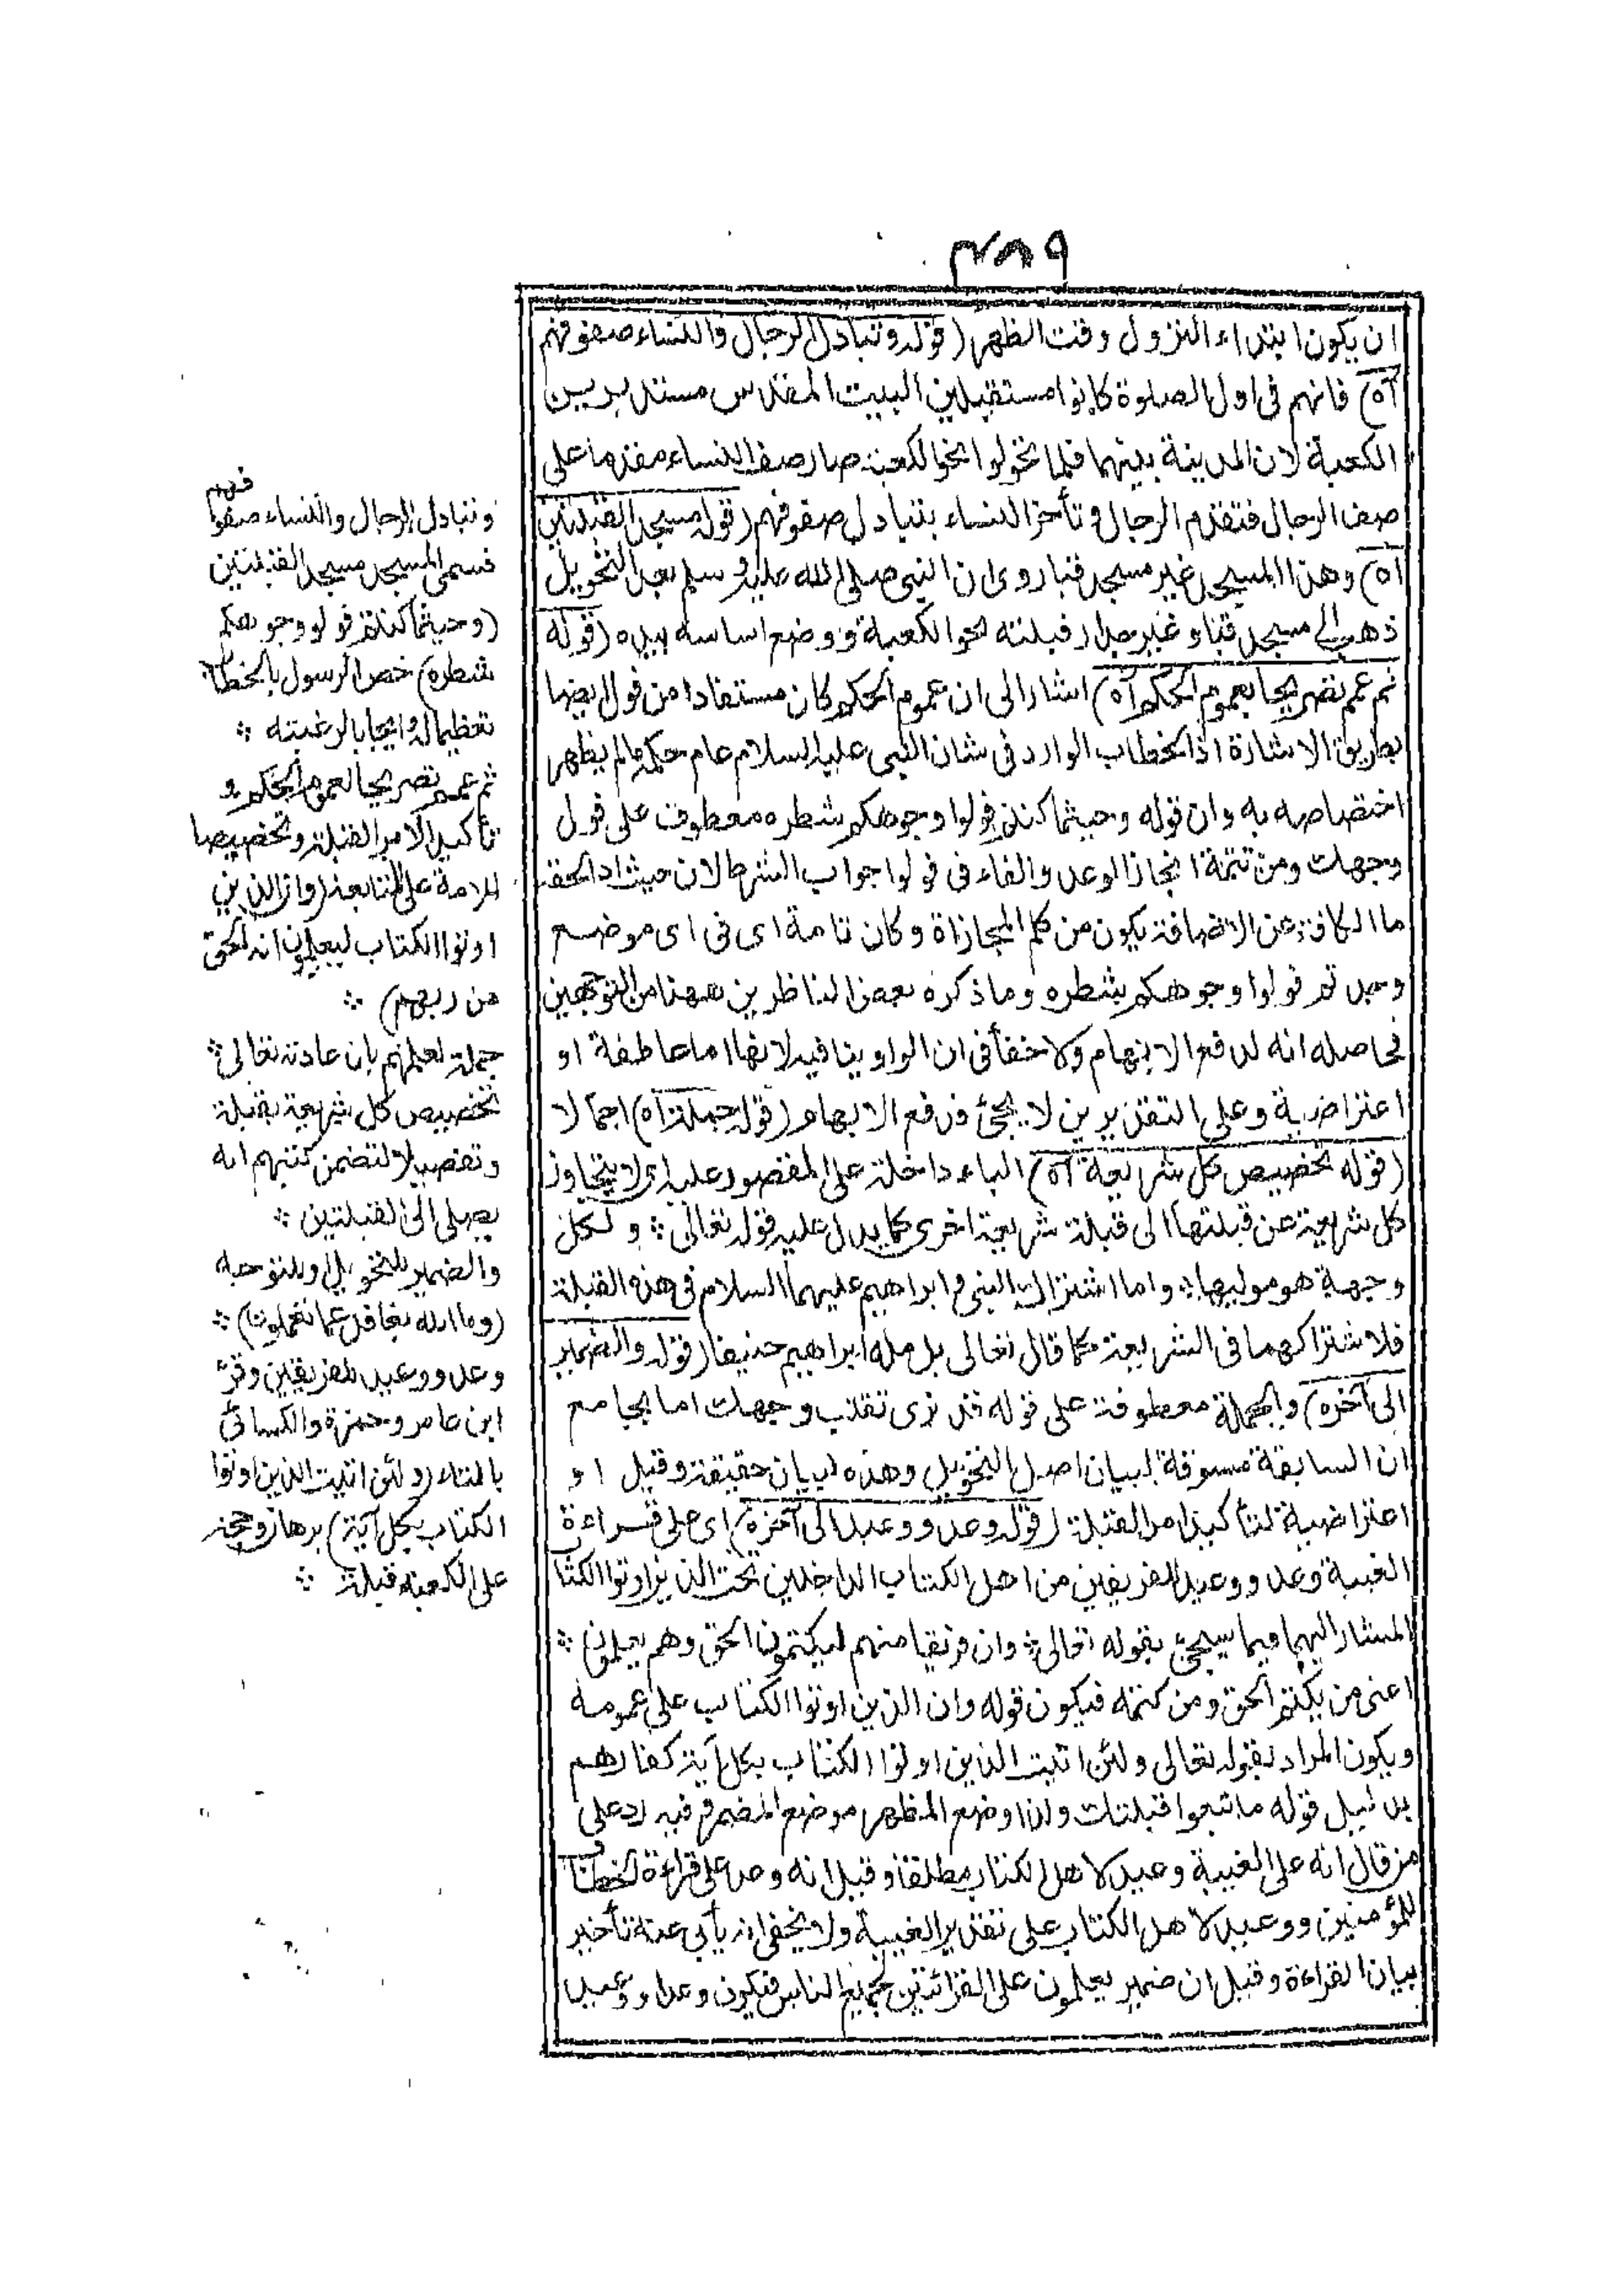 ٣٨٩
ان يكون ابتداء النزول وقت الظهر (قوله وتبادل الرجال والنساء صفوفهم
آه) فانهم فى اول الصلوة كانوا مستقبلين البيت المقدس مستدبرين
الكعبة لان المدينة بينهما فلما تحولوا نحو الكعبة صار صف النساء مقدما على
صف الرجال فتقدم الرجال وتأخر النساء بتبادل صفوفهم (قوله مسجد القبلتين
آه) وهذا المسجد غير مسجد قبا روى ان النبى صلى الله عليه وسلم بعد التحويل
ذهب الى مسجد قباء وغير جدار قبلته نحو الكعبة ووضع اساسه بيده (قوله
ثم عمم تصريحا بعموم الحكم آه) اشار الى ان عموم الحكم كان مستفادا من قول ايضا
بطريق الاشارة اذ الخطاب الوارد فى شان النبى عليه السلام عام حكمه مالم يظهر
اختصاصه به وان قوله وحيثما كنتم فولوا وجوهكم شطره معطوف على فول
وجهك ومن تتمة انجاز الوعد والفاء فى فولوا جواب الشرط لان حيث اذا لحقه
ما الكافة عن الاضافة يكون من كلم المجازاة وكان تامة اى فى اى موضع
وجدتم فولوا وجوهكم شطره وما ذكره بعض الناظرين ههنا من التوجهين
فحاصله انه لدفع الابهام ولا خفأ فى ان الواو ينافيه لانها اما عاطفة او
اعتراضية وعلى التقديرين لا يجئ فى رفع الابهام (قوله جملة آه) اجمالا
(قوله تخصيص كل شريعة آه) الباء داخلة على المقصور عليه اى لا يتجاوز
كل شريعة عن قبلتها الى قبلة شريعة اخرى كما يدل عليه قوله تعالى ؛ ولكل
وجهة هو موليها ؛ واما اشتراك النبى وابراهيم عليهما السلام فى هذه القبلة
فلاشتراكهما فى الشريعة كما قال تعالى بل ملة ابراهيم حنيفا (قوله والضمير
الى آخره) والجملة معطوفة على قوله قد نرى تقلب وجهك اما بجامع
ان السابقة مسوقة لبيان اصل التحويل وهذه لبيان حقيقته وقيل او
اعتراضية لتأكيد امر القبلة (قوله وعد ووعيد الى آخره) اى على قراءة
الغيبة وعد ووعيد للفريقين من اهل الكتاب الداخلين تحت الذين اوتوا الكتا
المشار اليهما فيما سيجئ بقوله تعالى ؛ وان فريقا منهم ليكتمون الحق وهم يعلمون ؛
اعنى من يكتم الحق ومن كتمه فيكون قوله وان الذين اوتوا الكتاب على عمومه
ويكون المراد بقوله تعالى ولئن اتيت الذين اوتوا الكتاب بكل آية كفارهم
بدليل قوله ما تبعوا قبلتك ولذا وضع المظهر موضع المضمر وفيه رد على
من قال انه على الغيبة وعيد لاهل الكتاب مطلقا وقيل انه وعد على قراءة الخطاب
للمؤمنين ووعيد لاهل الكتاب على تقدير الغيبة ولا يخفى انه يأبى عنه تأخير
بيان القراءة وقيل ان ضمير يعلمون على القرائتين لجميع الناس فيكون وعدا ووعيدا
وتبادل الرجال والنساء صفوفهم
فسمى المسجد مسجد القبلتين
(وحيثما كنتم فولوا وجوهكم
شطره) خص الرسول بالخطاب
تعظيما له وايجابا لرغبته ؛
ثم عمم تصريحا لعموم الحكم و
تأكيدا لامر القبلة وتحضيضا
للامة على المتابعة (وان الذين
اوتوا الكتاب ليعلمون انه الحق
من ربهم) ؛
جملة لعلمهم بان عادته تعالى ؛
تخصيص كل شريعة بقبلة
وتفصيلا لتضمن كتبهم انه
يصلى الى القبلتين ؛
والضمير للتحويل او للتوجه
(وما الله بغافل عما تعملون) ؛
وعد ووعيد للفريقين وقرء
ابن عامر وحمزة والكسائى
بالتاء (ولئن اتيت الذين اوتوا
الكتاب بكل آية) برهان وحجة
على الكعبة قبلة ؛